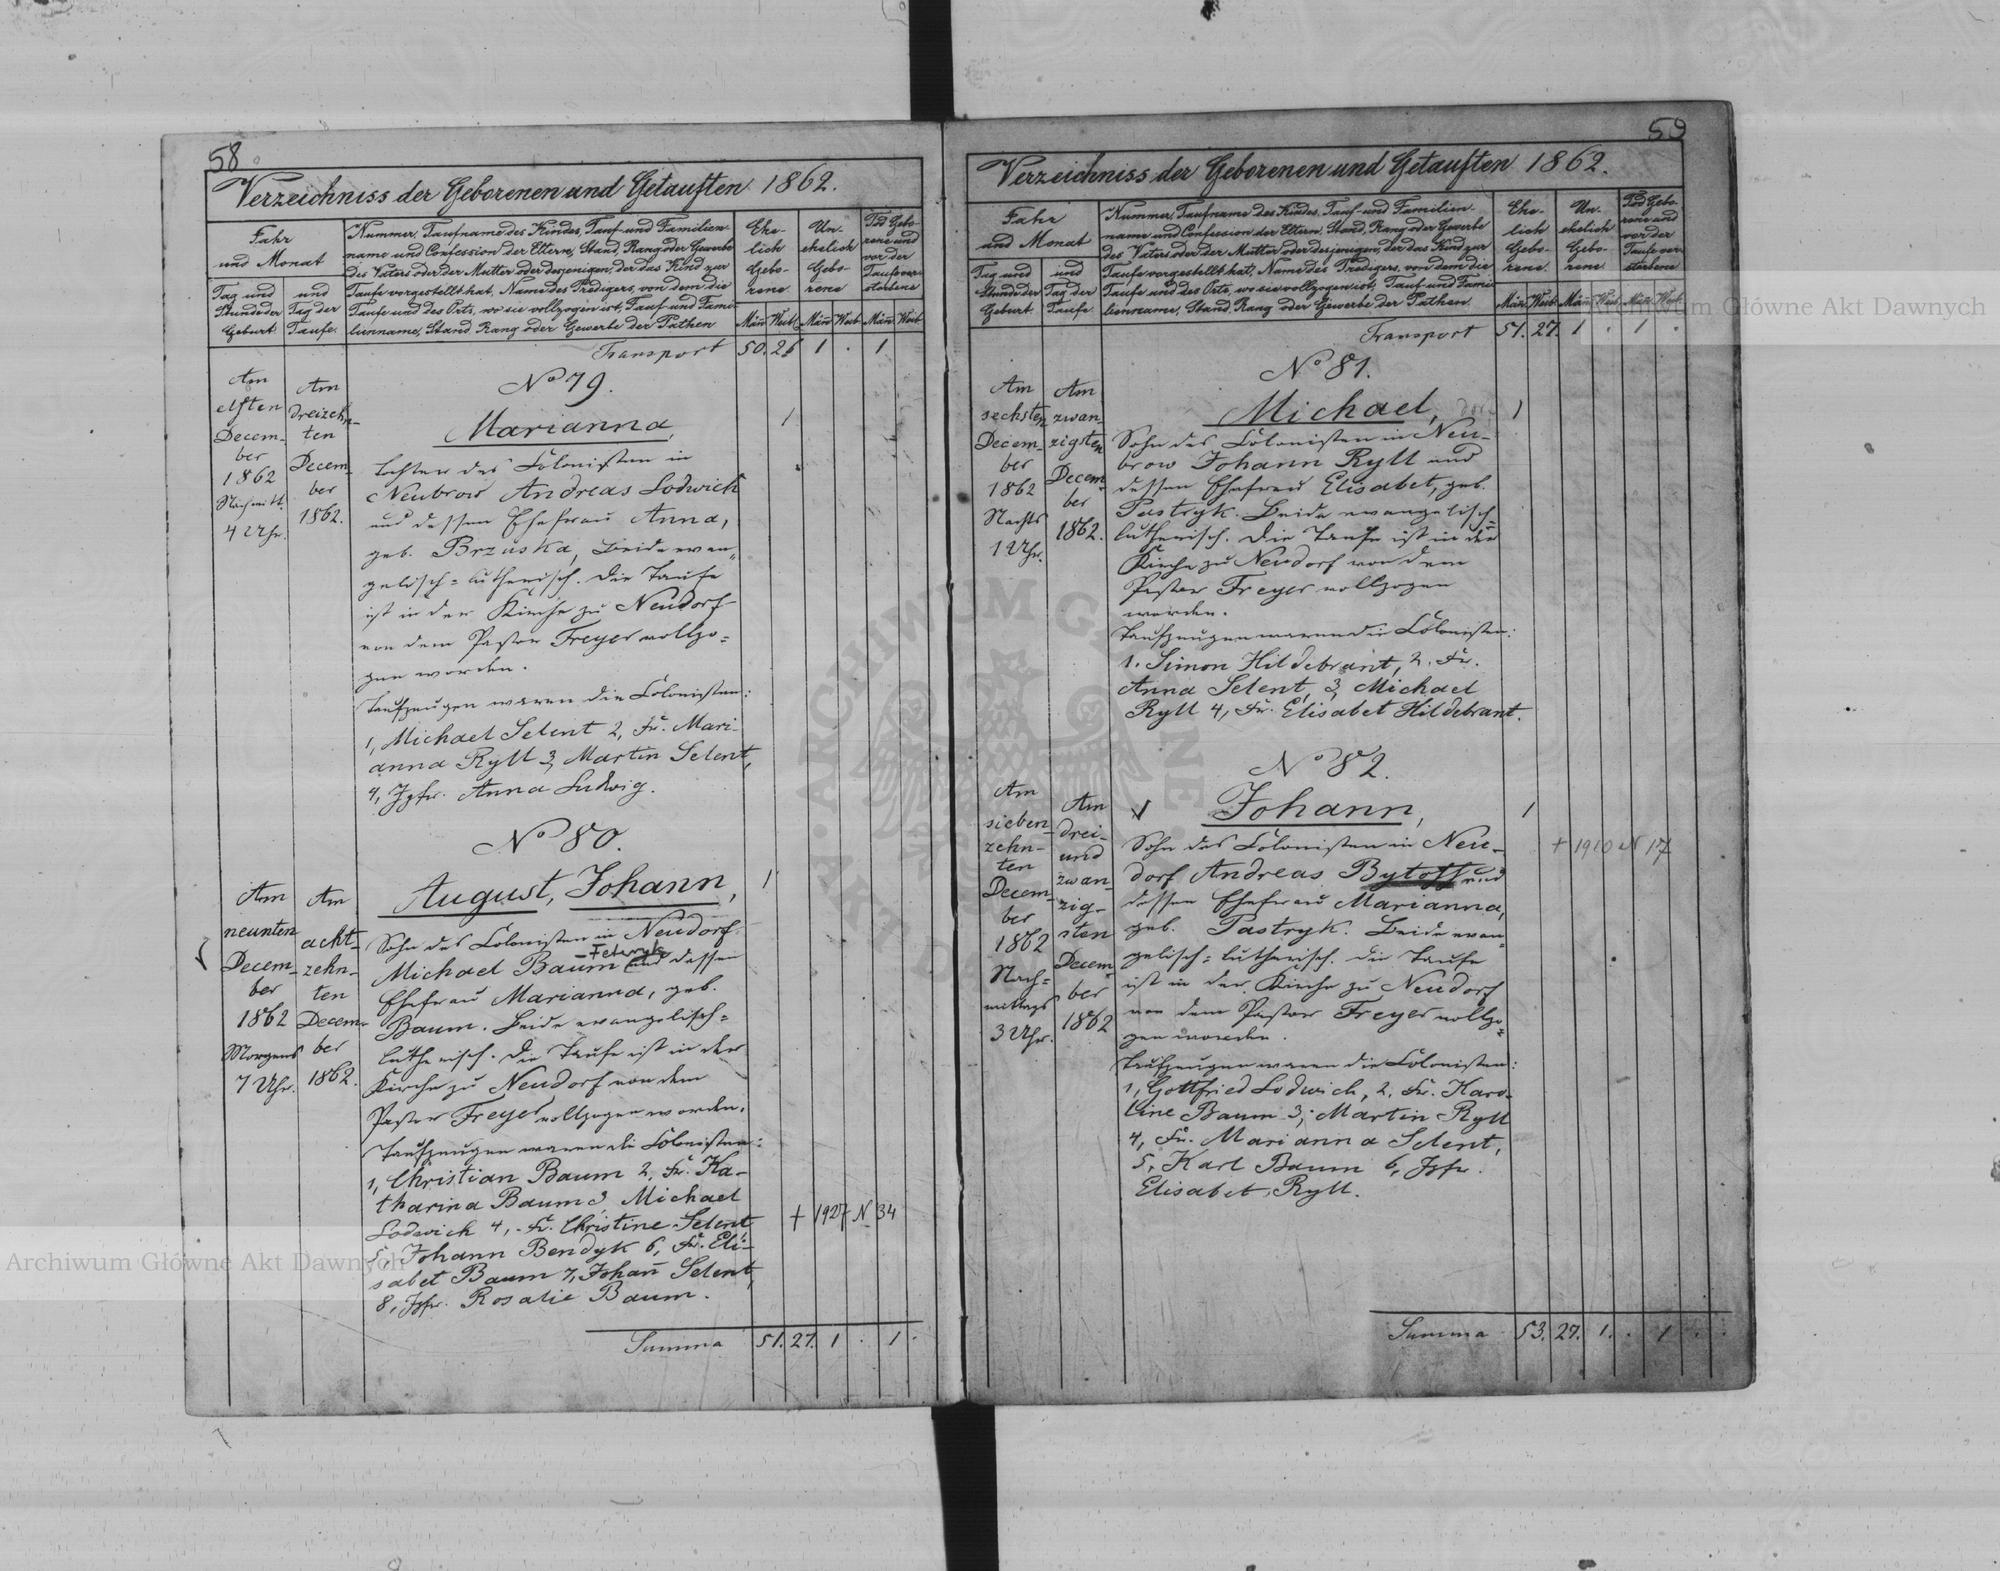 58
Verzeichniss der Geborenen und Getauften 1862.
Jahr
und Monat
Tag und
Stunde der
Geburt.
und
Tag der
Taufe.
Nummer, Taufname des Kindes, Tauf- und Familien-
name und Confession der Eltern, Stand, Rang oder Gewerbe
des Vaters oder der Mutter oder desjenigen, der das Kind zur
Taufe vorgestellt hat, Name des Predigers, von dem die
Taufe und des Orts, wo sie vollzogen ist, Tauf- und Fami-
lienname, Stand Rang oder Gewerbe der Pathen
Ehe-
lich
Gebo-
rene
Un-
ehelich
Gebo-
rene
Tod Gebo-
rene und
vor der
Taufe ver-
storbene
Män Weib Män Weib Män Weib
Transport 50. 26 1 . 1
Am
elften
Decem-
ber
1862
Nachmitt.
4 Uhr.
Am
dreizehn-
ten
Decem-
ber
1862.
No 79.
Marianna, 1
Tochter des Colonisten in
Neubrow Andreas Lodwich
und dessen Ehefrau Anna,
geb. Brzuska, Beide evan-
gelisch-lutherisch. Die Taufe
ist in der Kirche zu Neudorf
von dem Pastor Freyer vollzo-
gen worden.
Taufzeugen waren die Colonisten:
1, Michael Selent 2, Fr. Mari-
anna Ryll 3, Martin Selent,
4, Jgfr. Anna Ludwig.
Am
neunten
Decem-
ber
1862
Morgens
7 Uhr.
Am
acht-
zehn-
ten
Decem-
ber
1862.
No 80.
August, Johann, 1
Sohn des Colonisten in Neudorf
Michael Baum und dessen
Ehefrau Marianna, geb.
Baum. Beide evangelisch-
lutherisch. Die Taufe ist in der
Kirche zu Neudorf von dem
Pastor Freyer vollzogen worden.
Taufzeugen waren die Colonisten:
1, Christian Baum 2, Fr. Ka-
tharina Baum 3, Michael
Lodwich 4, Fr. Christine Selent,
5, Johann Bendyk 6, Fr. Eli-
sabet Baum 7, Johann Selent,
8, Jgfr. Rosalie Baum.
+ 1927 N 34
Summa 51. 27. 1 . 1 .
59
Verzeichniss der Geborenen und Getauften 1862.
Jahr
und Monat
Tag und
Stunde der
Geburt.
und
Tag der
Taufe
Nummer, Taufname des Kindes, Tauf- und Familien-
name und Confession der Eltern, Stand, Rang oder Gewerbe
des Vaters oder der Mutter oder desjenigen, der das Kind zur
Taufe vorgestellt hat, Name des Predigers, von dem die
Taufe und des Orts, wo sie vollzogen ist, Tauf- und Fami-
lienname, Stand, Rang oder Gewerbe der Pathen.
Ehe-
lich
Gebo-
rene.
Un-
ehelich
Gebo-
rene
Tod Gebo-
rene und
vor der
Taufe ver-
storbene
Män Weib Män Weib Män Weib
Transport 51. 27. 1 . 1 .
Am
sechsten
Decem-
ber
1862
Nachts
1 Uhr.
Am
zwan-
zigsten
Decem-
ber
1862.
No 81.
Michael, 1
Sohn des Colonisten in Neu-
brow Johann Ryll und
dessen Ehefrau Elisabet, geb.
Pastryk. Beide evangelisch-
lutherisch. Die Taufe ist in der
Kirche zu Neudorf von dem
Pastor Freyer vollzogen
worden.
Taufzeugen waren die Colonisten:
1. Simon Hildebrant, 2. Fr.
Anna Selent, 3, Michael
Ryll 4, Fr. Elisabet Hildebrant.
Am
sieben-
zehn-
ten
Decem-
ber
1862
Nach-
mittags
3 Uhr.
Am
drei-
und
zwan-
zig-
sten
Decem-
ber
1862
No 82.
Johann, 1
Sohn des Colonisten in Neu-
dorf Andreas Bytoff und
dessen Ehefrau Marianna,
geb. Pastryk. Beide evan-
gelisch-lutherisch. Die Taufe
ist in der Kirche zu Neudorf
von dem Pastor Freyer vollzo-
gen worden.
+ 1910 N 17
Taufzeugen waren die Colonisten:
1, Gottfried Lodwich, 2, Fr. Karo-
line Baum 3, Martin Ryll
4, Fr. Marianna Selent,
5, Karl Baum 6, Jgfr.
Elisabet Ryll.
Summa 53. 27. 1. . 1 .
Archiwum Główne Akt Dawnych
Archiwum Główne Akt Dawnych